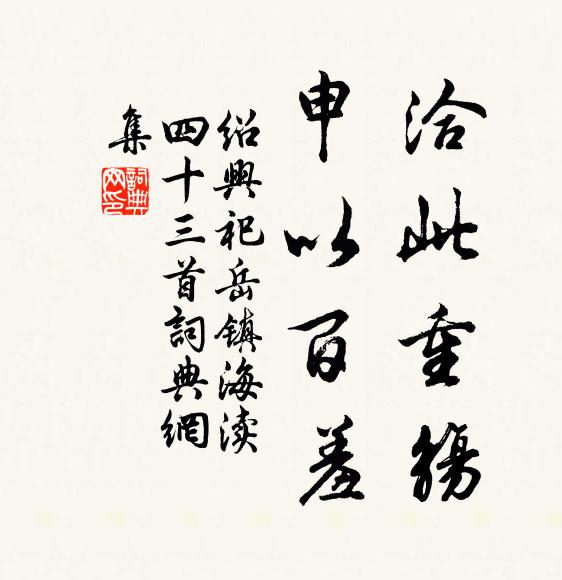 洽此重觞
申以百羞
绍興祀岳镇海渎
四十三首詞典網
集
詞典
网印